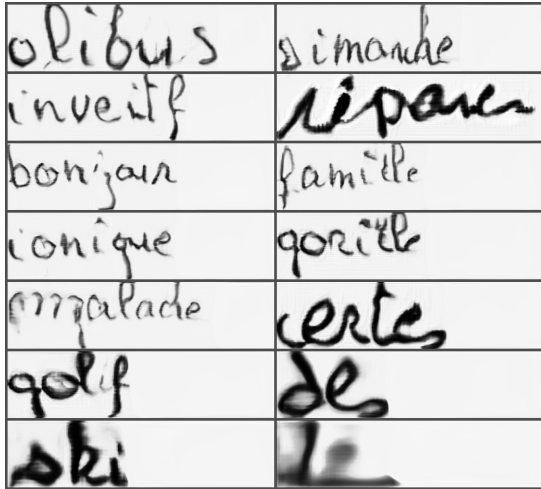 olibus dimanche
inveitf réponse
bonjour famille
ionique gorille
malade certes
golf des
ski le